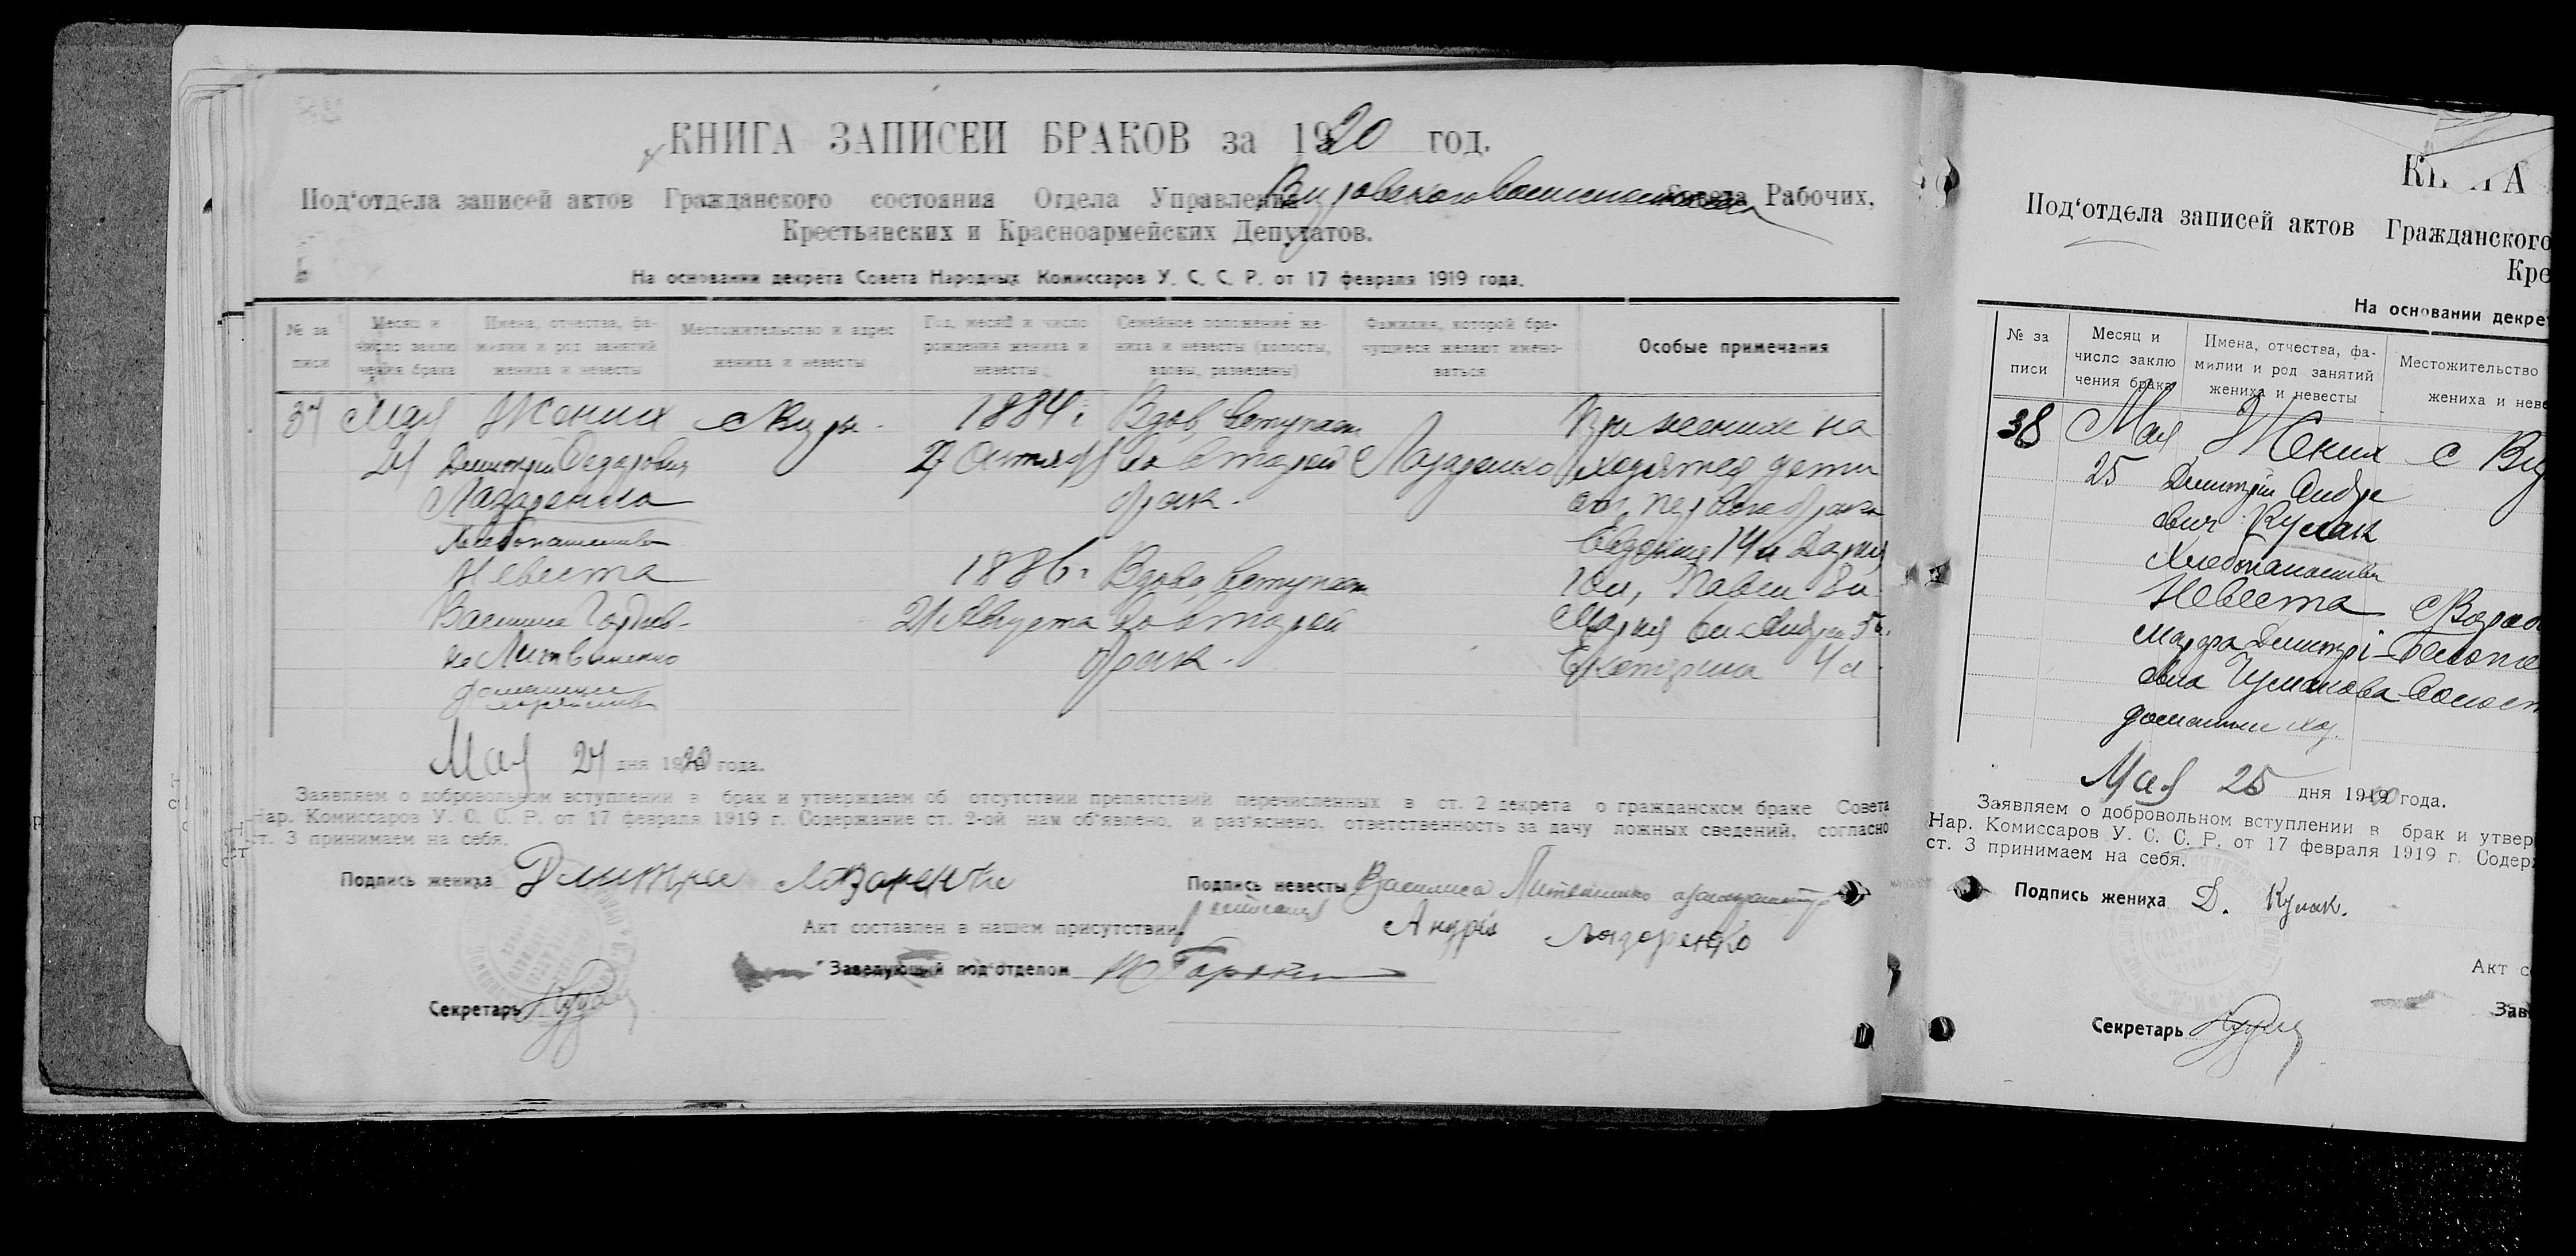 КНИГА ЗАПИСЕЙ БРАКОВ за 1920 год.
Под'отдела записей актов Гражданского состояния Отдела Управления Совета Рабочих,
Крестьянских и Красноармейских Депутатов.
На основании декрета Совета Народных Комиссаров У. С. С. Р. от 17 февраля 1919 года.
№ за писи
Месяц и число заклю чения брака
Имена, отчества, фа- милии и род занятий жениха и невесты
Местожительство и адрес жениха и невесты
Год, месяц и число рождения жениха и невесты
Семейное положение же- ниха и невесты (холосты, вдовы, разведены)
Фамилия, которой бра- чущиеся желают имено- ваться
Особые примечания
37 Мая Жених 1884 г Вдов, вступает При женихе на
24 Дмитрій Федорович 27 Октября во второй Лазаренко ходятся дети
Лазаренко брак. от первого брака
Хлебопашество 14 л Дария
Невеста 1886 г Вдова, вступает 10 л, Павел 8 л
Василиса Гордеев- 21 Августа во второй Мария 6 л Андрей 5 л.
на Литвиненко брак. Екатерина 4 л
домашнее
Мая 24 дня 1920 года.
Заявляем о добровольном вступлении в брак и утверждаем об отсутствии препятствий перечисленных в ст. 2 декрета о гражданском браке Совета
Нар. Комиссаров У. С. С. Р. от 17 февраля 1919 г. Содержание ст. 2-ой нам об'явлено, и раз'яснено, ответственность за дачу ложных сведений, согласно
ст. 3 принимаем на себя.
Подпись жениха Дмитрий Лазаренко
Подпись невесты Василиса Литвиненко
Акт составлен в нашем присутствии Андрій Лазаренко
Заведующий под'отделом
Секретарь
КНИГА
Под'отдела записей актов Гражданского
Кре
На основании декре
№ за писи
Месяц и число заклю чения брака
Имена, отчества, фа- милии и род занятий жениха и невесты
Местожительство
жениха и неве
38 Мая Жених с
25 Дмитрій Андре
евич Кулак
Хлебопашество
Невеста
Марфа Дмитрі-
евна Чумакова
домашнее хоз.
Мая 25 дня 1920 года.
Заявляем о добровольном вступлении в брак и утвер
Нар. Комиссаров У. С. С. Р. от 17 февраля 1919 г. Содер
ст. 3 принимаем на себя.
Подпись жениха Д. Кулак.
Акт с
Зав
Секретарь